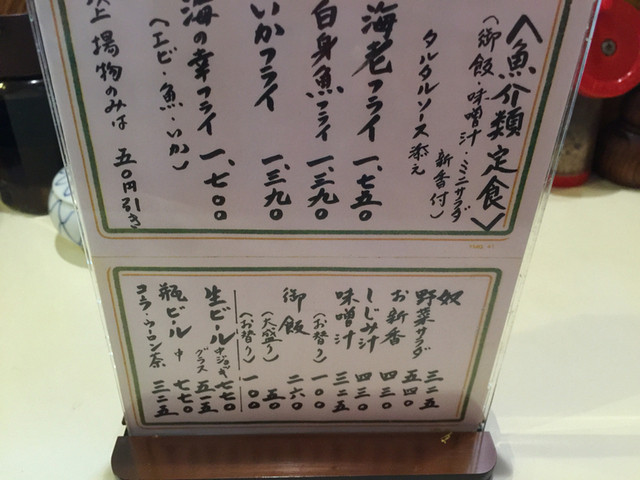 〈魚介類定食〉
(御飯・味噌汁・ミニサラダ
新香付)
タルタルソース添え
海老フライ 一、七五〇
白身魚フライ 一、三九〇
いかフライ 一、三九〇
海の幸フライ 一、七〇〇
(エビ・魚・いか)
揚物のみは 五〇円引き
奴 三二五
野菜サラダ 五四〇
お新香 四三〇
しじみ汁 四三〇
味噌汁 三二五
(お替り) 一〇〇
御飯 二六〇
(大盛り) 五〇
(お替り) 一〇〇
生ビール 中ジョッキ 七七〇
グラス 五一五
瓶ビール 中 七七〇
コーラ・ウーロン茶 三二五